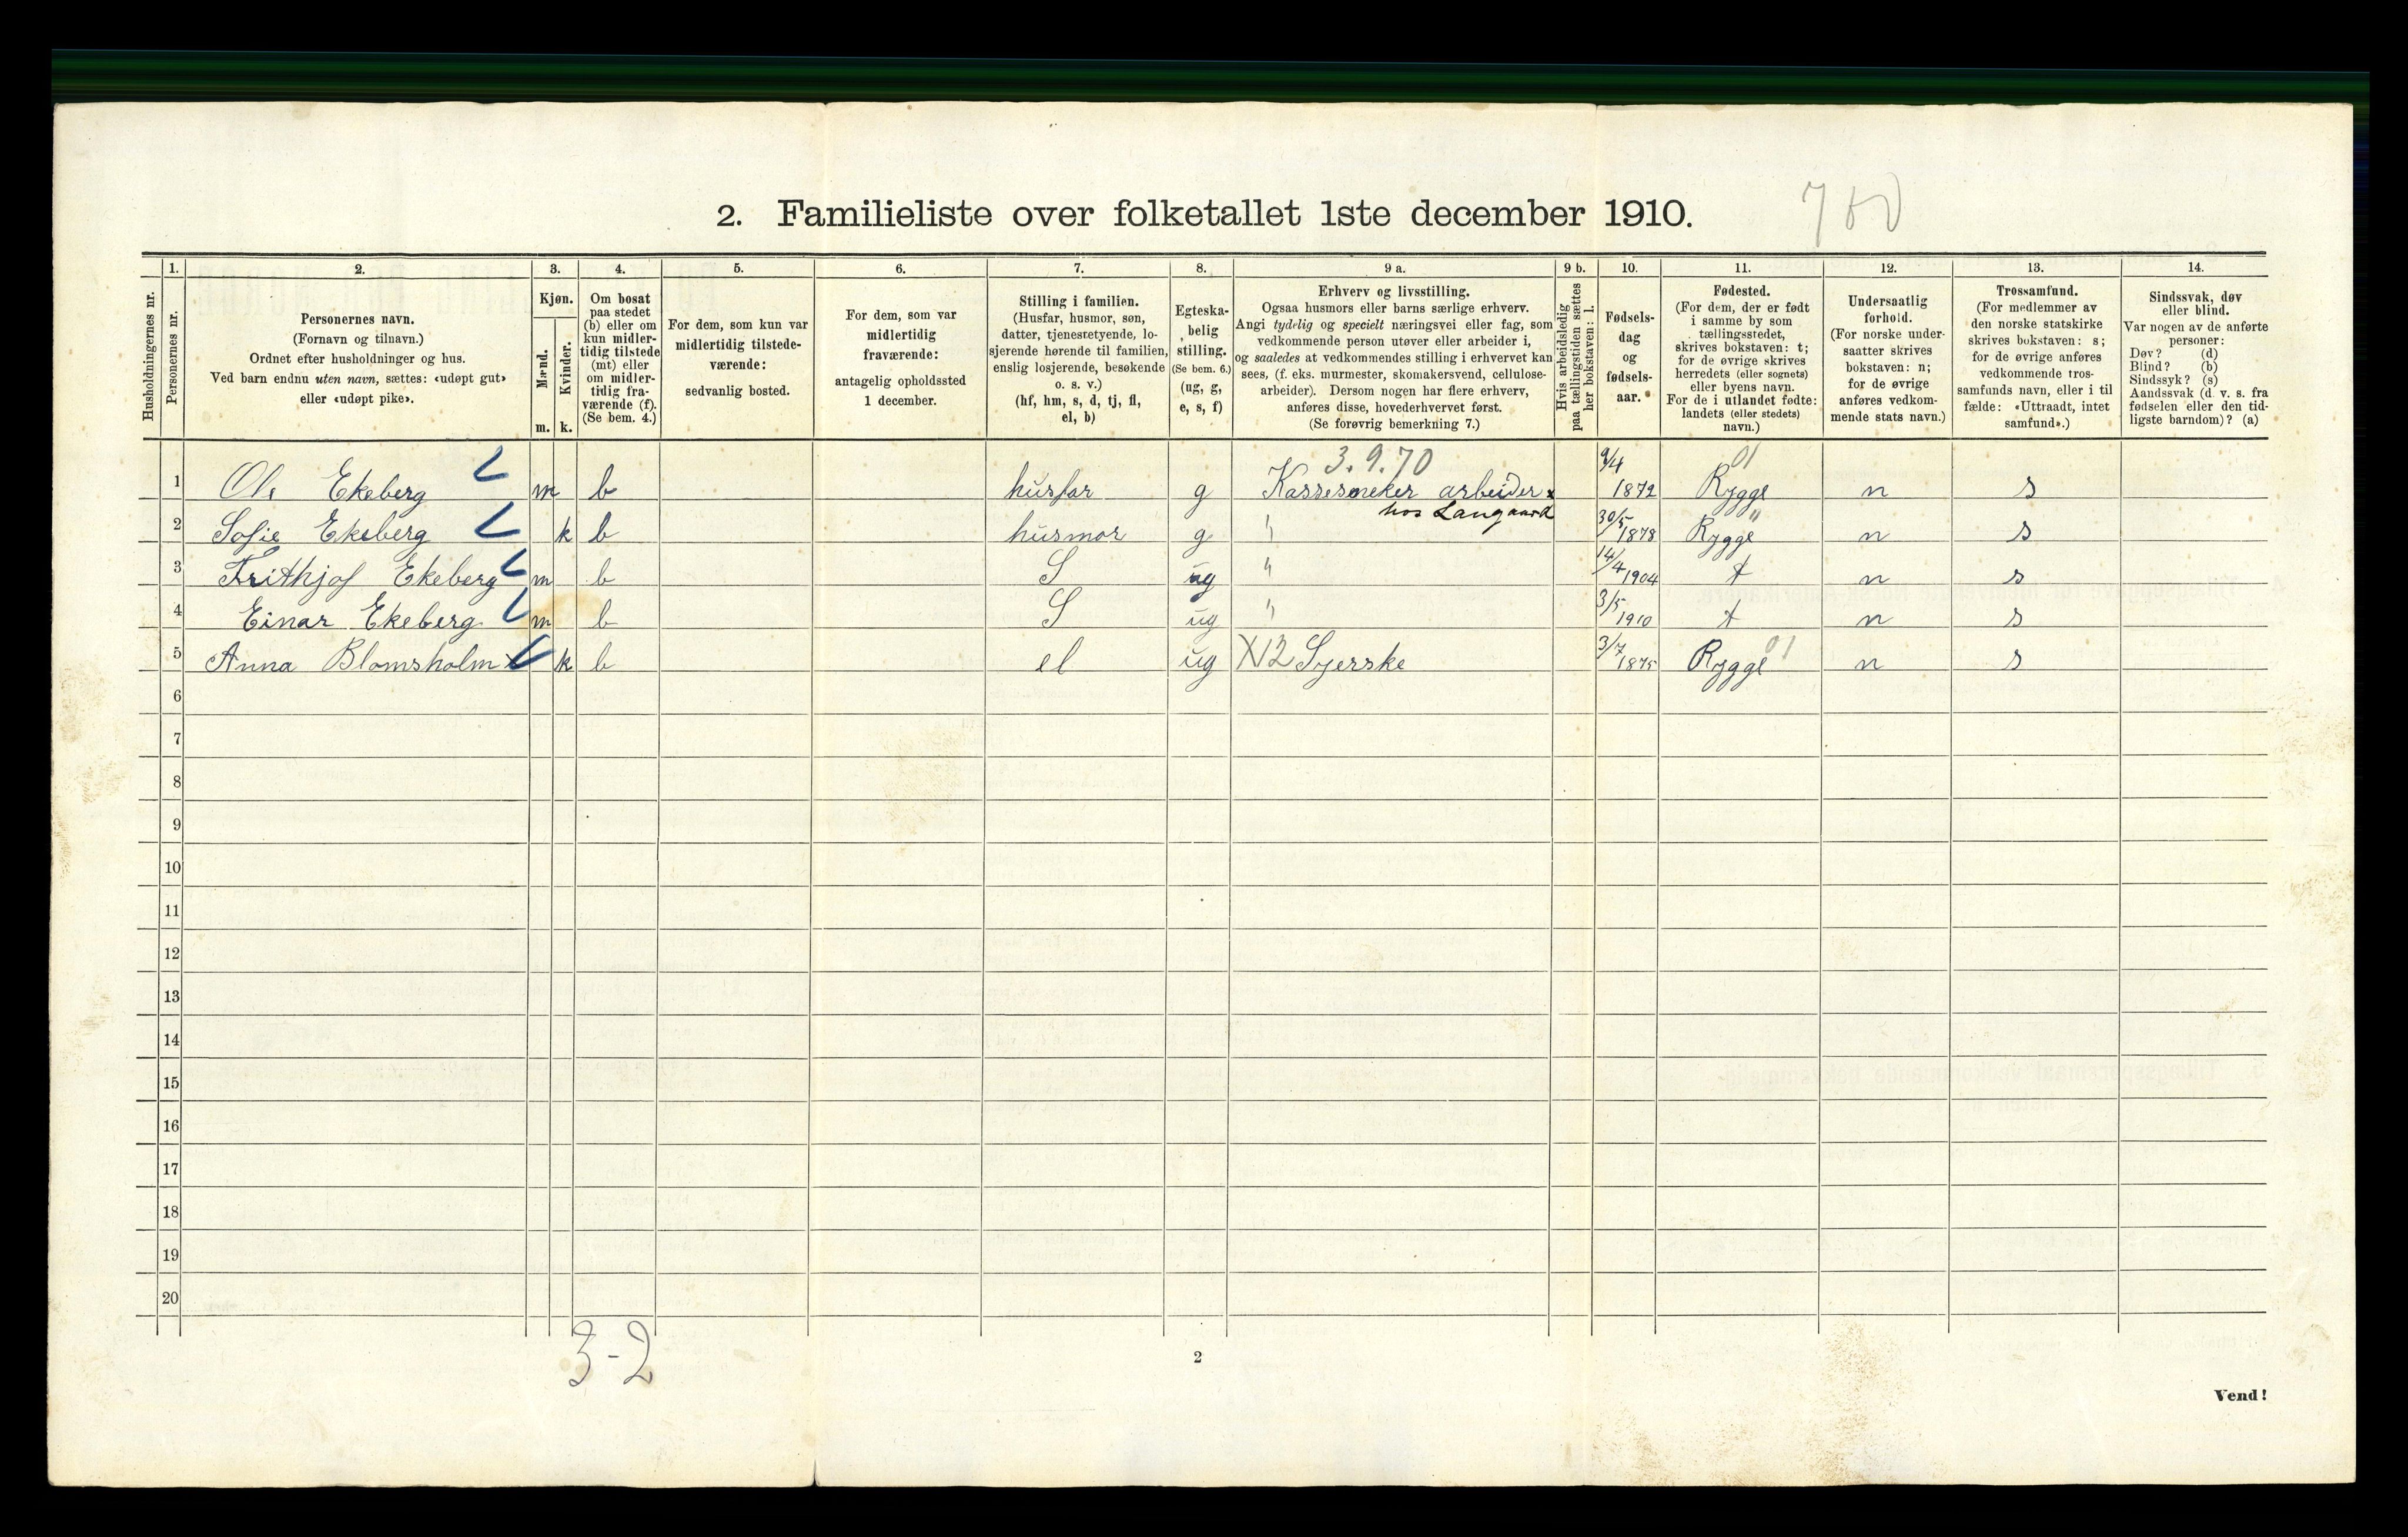 2. Familieliste over folketallet 1ste december 1910.
1. 2. 3. 4. 5. 6. 7. 8. 9 a. 9 b. 10. 11. 12. 13. 14.
Husholdningernes nr.
Personernes nr.
Personernes navn.
(Fornavn og tilnavn.)
Ordnet efter husholdninger og hus.
Ved barn endnu uten navn, sættes: «udøpt gut»
eller «udøpt pike».
Kjøn.
Mænd.
m.
Kvinder.
k.
Om bosat
paa stedet
(b) eller om
kun midler-
tidig tilstede
(mt) eller
om midler-
tidig fra-
værende (f).
(Se bem. 4.)
For dem, som kun var
midlertidig tilstede-
værende:
sedvanlig bosted.
For dem, som var
midlertidig
fraværende:
antagelig opholdssted
1 december.
Stilling i familien.
(Husfar, husmor, søn,
datter, tjenestetyende, lo-
sjerende hørende til familien,
enslig losjerende, besøkende
o. s. v.)
(hf, hm, s, d, tj, fl,
el, b)
Egteska-
belig
stilling.
(Se bem. 6.)
(ug, g,
e, s, f)
Erhverv og livsstilling.
Ogsaa husmors eller barns særlige erhverv.
Angi tydelig og specielt næringsvei eller fag, som
vedkommende person utøver eller arbeider i,
og saaledes at vedkommendes stilling i erhvervet kan
sees, (f. eks. murmester, skomakersvend, cellulose-
arbeider). Dersom nogen har flere erhverv,
anføres disse, hovederhvervet først.
(Se forøvrig bemerkning 7.)
Hvis arbeidsledig
paa tællingstiden sættes
her bokstaven: l.
Fødsels-
dag
og
fødsels-
aar.
Fødested.
(For dem, der er født
i samme by som
tællingsstedet,
skrives bokstaven: t;
for de øvrige skrives
herredets (eller sognets)
eller byens navn.
For de i utlandet fødte:
landets (eller stedets)
navn.)
Undersaatlig
forhold.
(For norske under-
saatter skrives
bokstaven: n;
for de øvrige
anføres vedkom-
mende stats navn.)
Trossamfund.
(For medlemmer av
den norske statskirke
skrives bokstaven: s;
for de øvrige anføres
vedkommende tros-
samfunds navn, eller i til
fælde: «Uttraadt, intet
samfund».)
Sindssvak, døv
eller blind.
Var nogen av de anførte
personer:
Døv? (d)
Blind? (b)
Sindssyk? (s)
Aandssvak (d. v. s. fra
fødselen eller den tid-
ligste barndom)? (a)
3.9.70 9/4 01
1 Ole Ekeberg m b husfar g Kassesneker arbeider x 1872 Rygge n s
hos Langaard
2 Sofie Ekeberg k b husmor g " 30/5 1878 Rygge " n s
3 Frithjof Ekeberg m b S ug " 14/4 1904 t n s
4 Einar Ekeberg m b S ug " 3/5 1910 t n s
5 Anna Blomsholm x k b el ug X12 Syerske 3/7 1875 Rygge 01 n s
6
7
8
9
10
11
12
13
14
15
16
17
18
19
20
3-2
2
Vend!